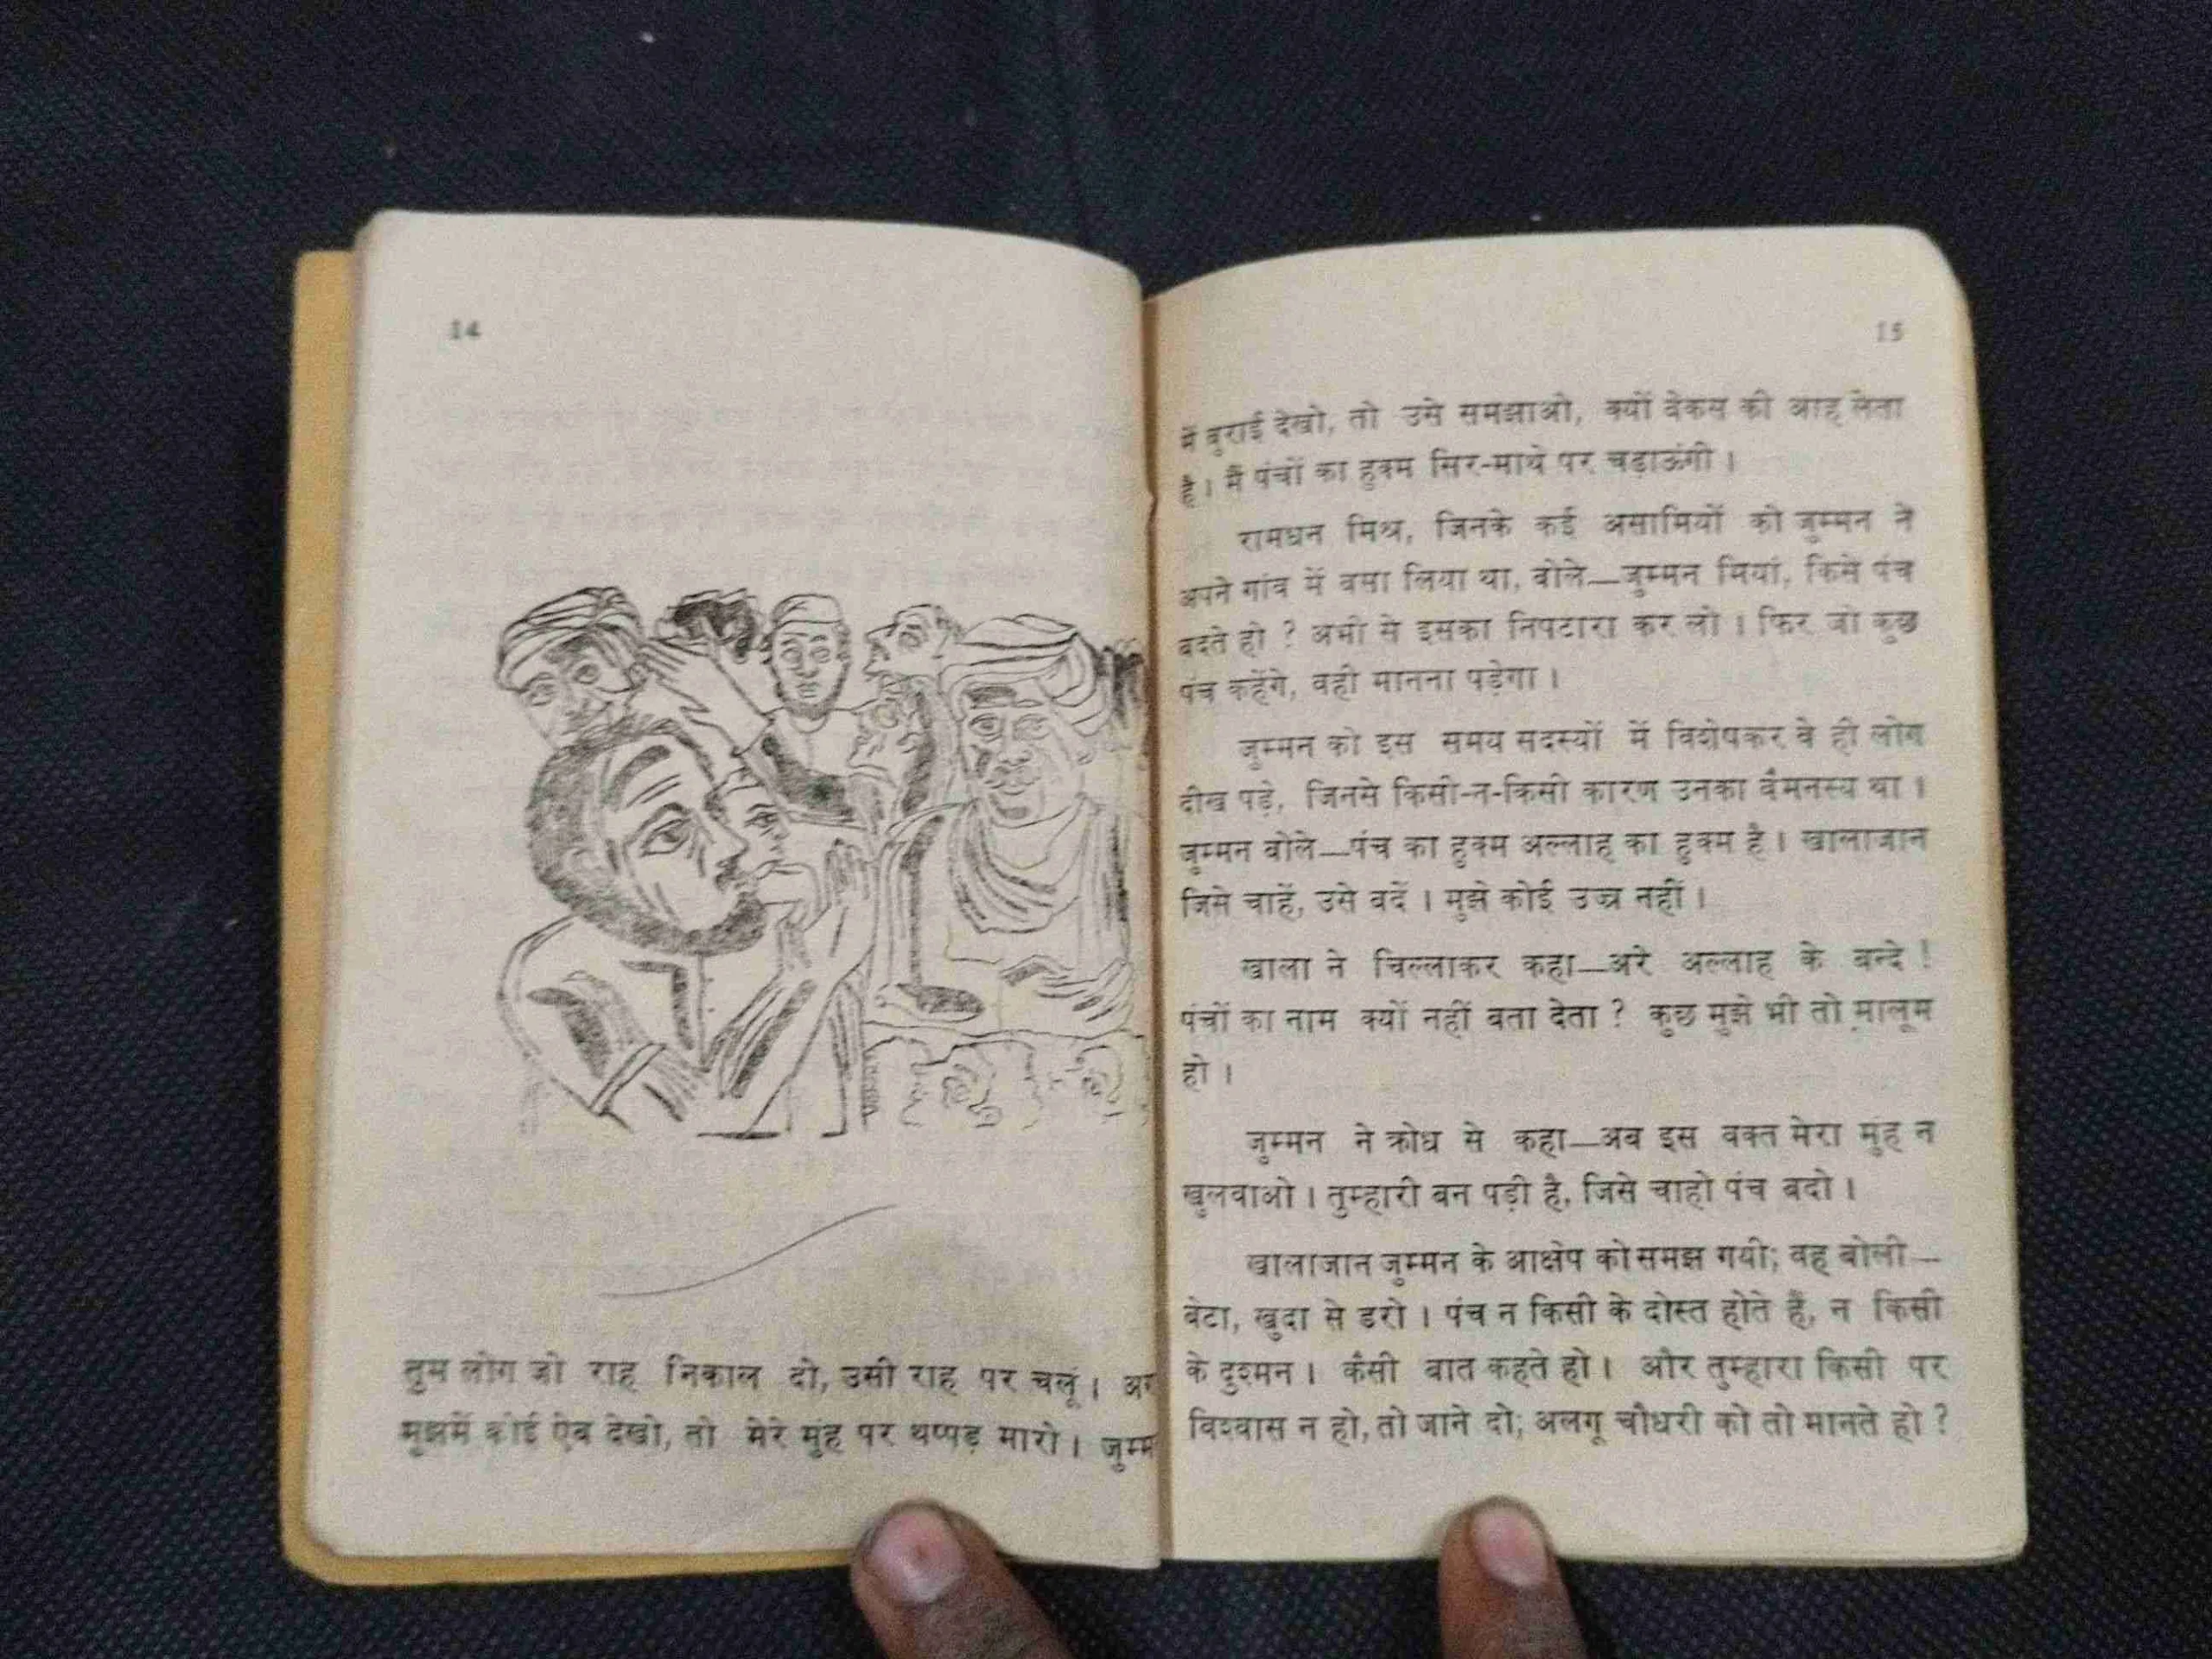 14
तुम लोग जो राह निकाल दो, उसी राह पर चलूं । अग
मुझमें कोई ऐब देखो, तो मेरे मुंह पर थप्पड़ मारो । जुम्म
15
में बुराई देखो, तो उसे समझाओ, क्यों बेकस की आह लेता
है । मैं पंचों का हुक्म सिर-माथे पर चढ़ाऊंगी ।
रामधन मिश्र, जिनके कई असामियों को जुम्मन ने
अपने गांव में बसा लिया था, बोले—जुम्मन मियां, किसे पंच
बदते हो ? अभी से इसका निपटारा कर लो । फिर जो कुछ
पंच कहेंगे, वही मानना पड़ेगा ।
जुम्मन को इस समय सदस्यों में विशेषकर वे ही लोग
दीख पड़े, जिनसे किसी-न-किसी कारण उनका वैमनस्य था ।
जुम्मन बोले—पंच का हुक्म अल्लाह का हुक्म है । खालाजान
जिसे चाहें, उसे बदें । मुझे कोई उज्र नहीं ।
खाला ने चिल्लाकर कहा—अरे अल्लाह के बन्दे !
पंचों का नाम क्यों नहीं बता देता ? कुछ मुझे भी तो मालूम
हो ।
जुम्मन ने क्रोध से कहा—अब इस वक्त मेरा मुंह न
खुलवाओ । तुम्हारी बन पड़ी है, जिसे चाहो पंच बदो ।
खालाजान जुम्मन के आक्षेप को समझ गयी; वह बोली—
बेटा, खुदा से डरो । पंच न किसी के दोस्त होते हैं, न किसी
के दुश्मन । कैसी बात कहते हो । और तुम्हारा किसी पर
विश्वास न हो, तो जाने दो; अलगू चौधरी को तो मानते हो ?